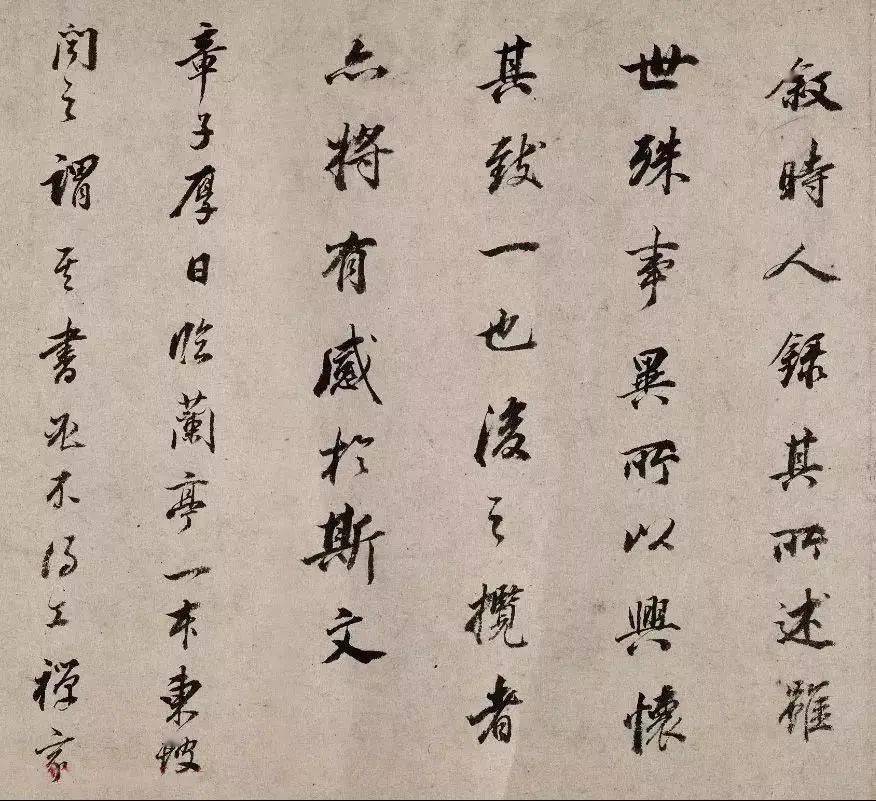 敘時人錄其所述雖
世殊事異所以興懷
其致一也後之攬者
亦將有感於斯文
章子厚日臨蘭亭一本東坡
聞之謂其書必不得工禪家